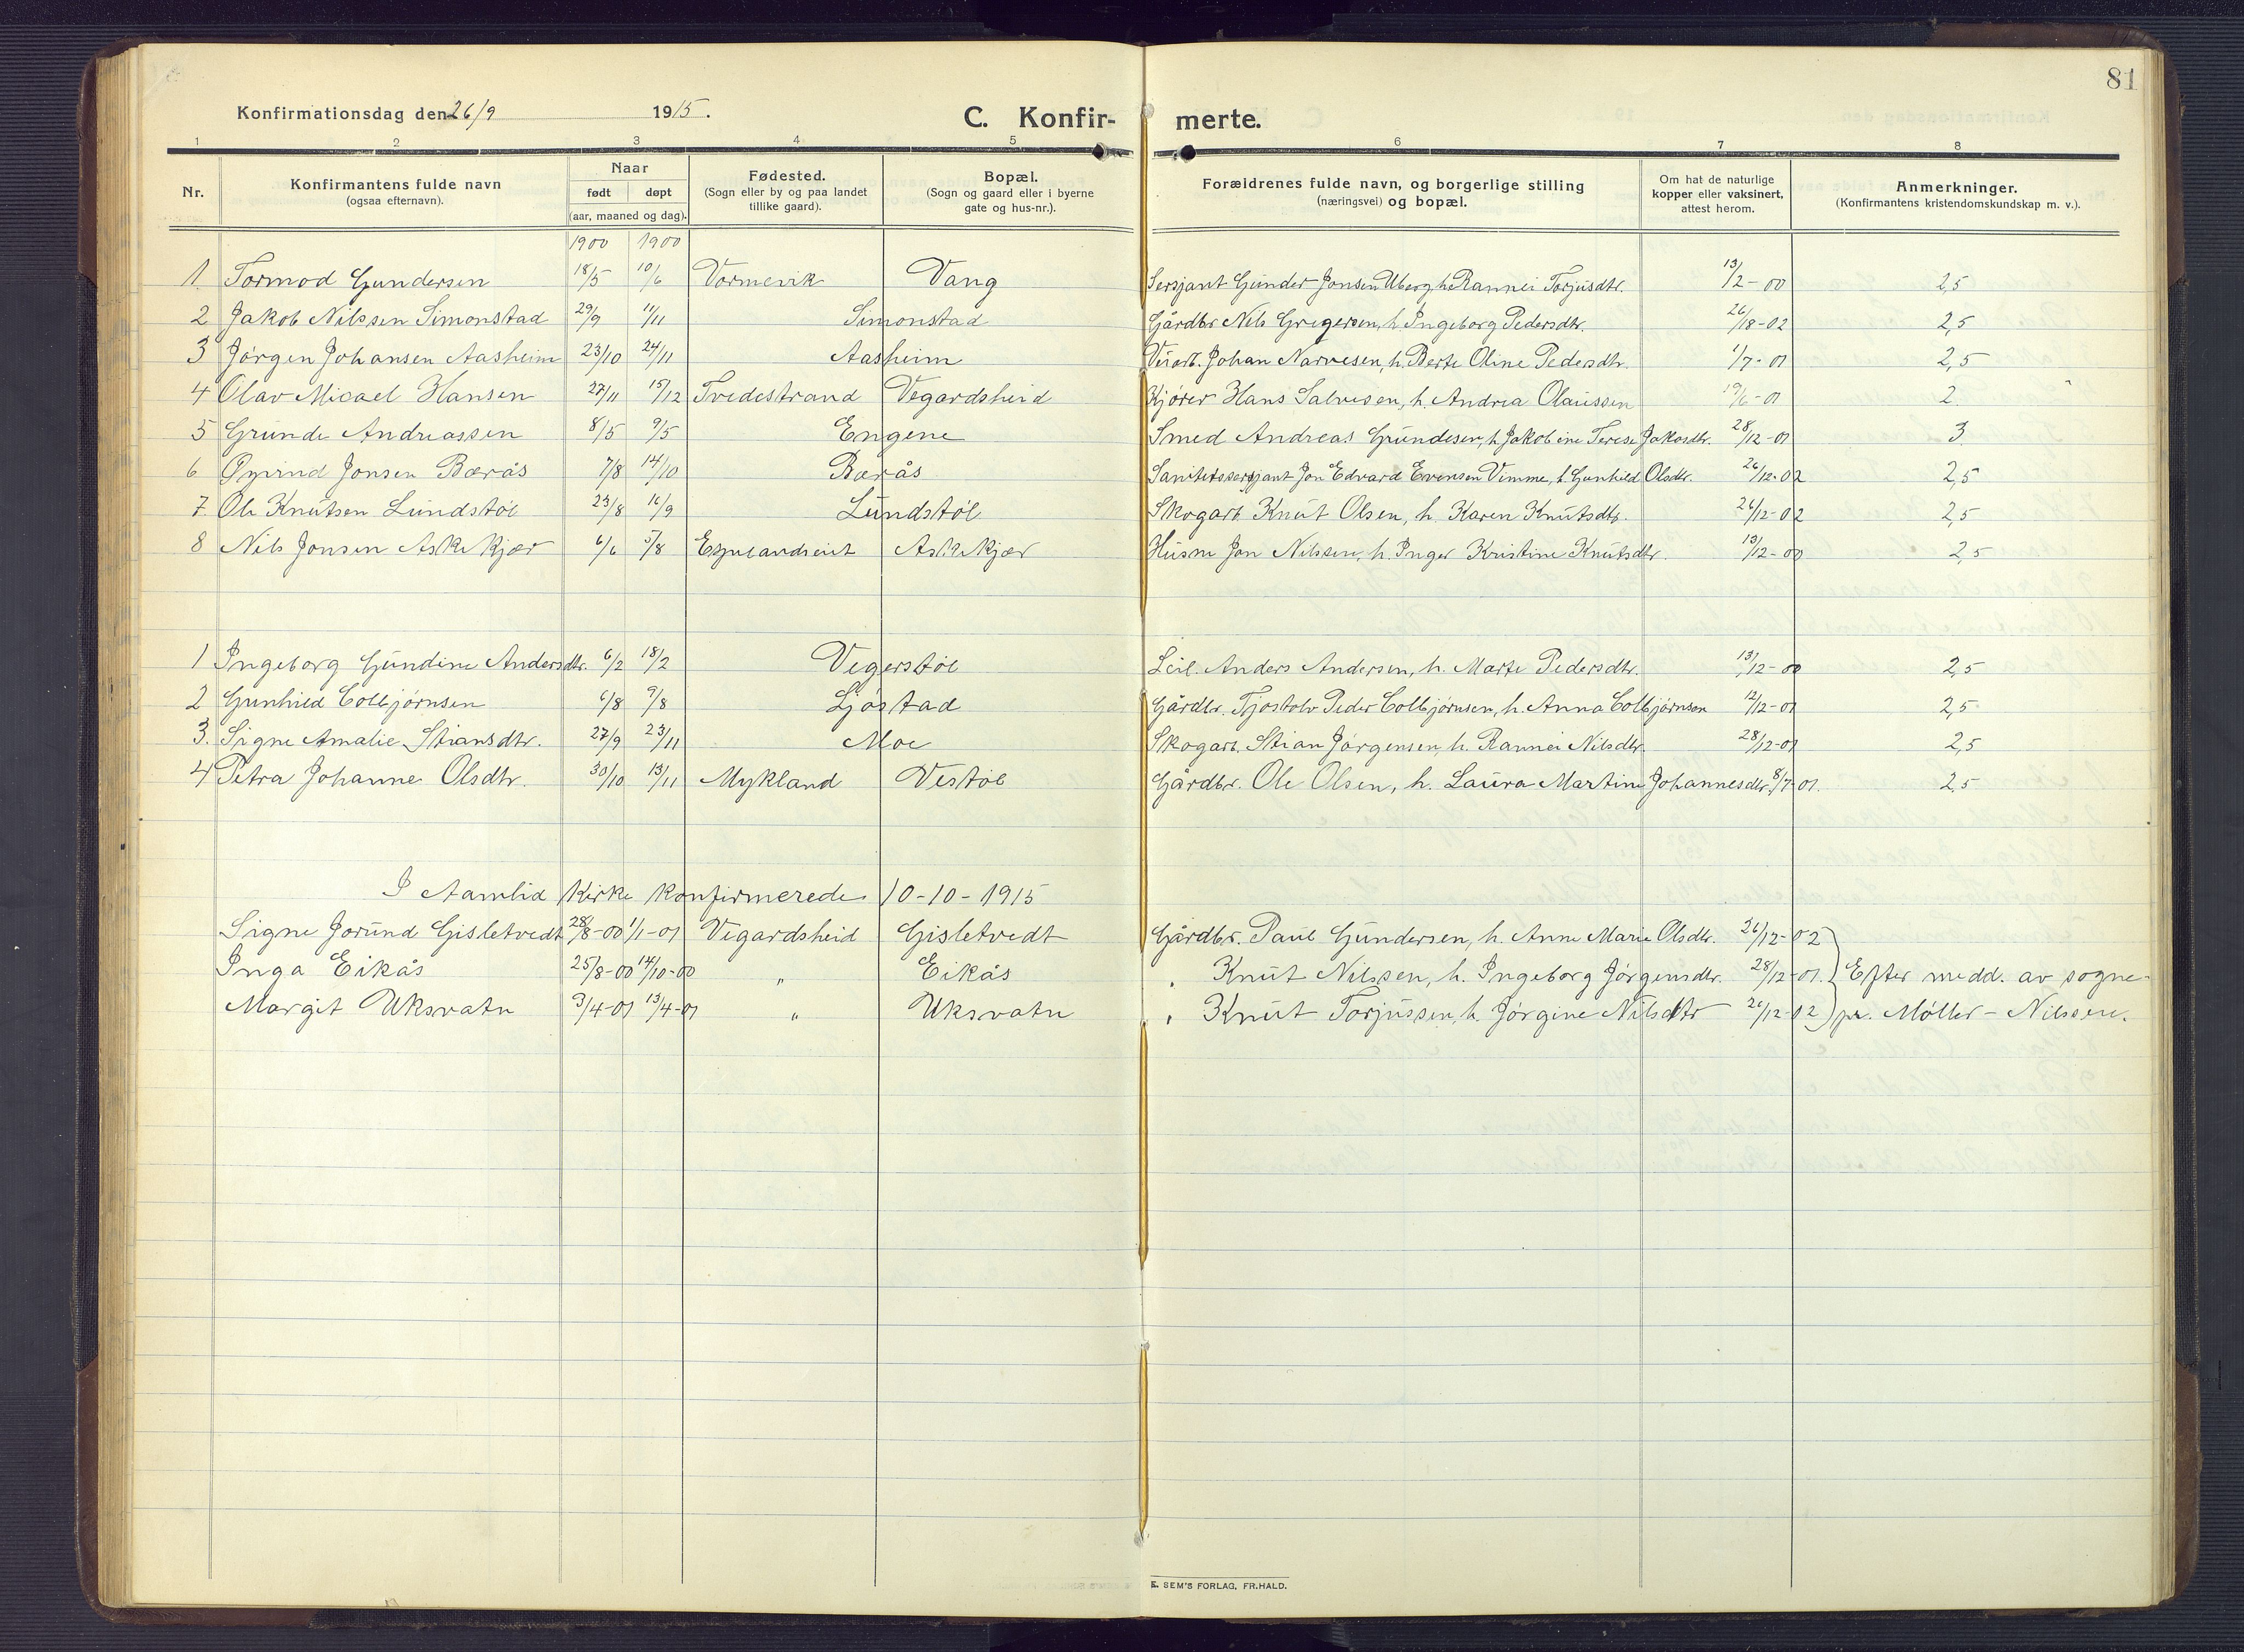 81
Konfirmationsdag den 26/9 1915. C. Konfir- merte.
1 2 3 4 5 6 7 8
Nr. Konfirmantens fulde navn (ogsaa efternavn). Naar født døpt (aar, maaned og dag). Fødested. (Sogn eller by og paa landet tillike gaard). Bopæl. (Sogn og gaard eller i byerne gate og hus-nr.). Forældrenes fulde navn, og borgerlige stilling (næringsvei) og bopæl. Om hat de naturlige kopper eller vaksinert, attest herom. Anmerkninger. (Konfirmantens kristendomskundskap m. v.).
1900 1900
1. Tormod Gundersen 18/5 10/6 Vormevik Vang Sersjant Gunder Jonsen Uberg, h. Rannei Torjusdtr. 13/2-00 2,5
2 Jakob Nilssen Simonstad 29/9 11/11 Simonstad Gårdbr. Nils Gregersen, h. Ingeborg Pedersdtr. 26/18-02 2,5
3 Jørgen Johansen Aasheim 23/10 24/11 Aasheim Johan Narvesen, h. Berte Oline Pedersdtr. 1/7-01 2,5
4 Olav Micael Hansen 27/11 15/12 Tvedestrand Vegardsheid Kjører Hans Salvesen, h. Andrea Olaussen 19/6-01 2.
5 Grunde Andreassen 8/5 9/5 Engene Smed Andreas Grundesen, h. Jakobine Terese Jakosdtr. 28/12-01 3.
6 Øyvind Jonsen Bærås 7/8 14/10 Bærås Sanitetssersjant Jon Edvard Evensen Vimme, h. Gunhild Olsdtr. 26/12-02 2,5
7 Ole Knutsen Lundstøl 23/8 16/9 Lundstøl Skogarb. Knut Olsen, h. Karen Knutsdtr. 26/12-02 2,5
8 Nils Jonsen Askekjær 6/6 5/8 Espelandseiet Askekjær Husm Jon Nilssen, h. Inger Kristine Knutsdtr. 13/12-00 2,5
1 Ingeborg Gundine Andersdtr. 6/2 18/2 Vegerstøl Leil. Anders Andersen, h. Marte Pedersdtr. 13/12-00 2,5
2 Gunhild Colbjørnsen 6/8 9/8 Ljøstad Gårdbr. Tjostolv Peder Colbjørnsen, h. Anna Colbjørnsen 12/12-01 2,5
3. Signe Amalie Stiansdtr. 27/9 23/11 Moe Skogarb. Stian Jørgensen, h. Rannei Nilsdtr. 28/12-01 2,5
4 Petra Johanne Olsdtr. 30/10 13/11 Mykland Vestøl Gårdbr. Ole Olsen, h. Laura Martine Johannesdtr. 8/7-01. 2,5
I Aamlid Kirke konfirmerede 10-10-1915
Signe Jorund Gisletvedt 28/8-00 1/1-01 Vegardsheid Gisletvedt Gårdbr. Paul Gundersen, h. Anne Marie Olsdtr. 26/12-02
Inga Eikås 25/8-00 14/10-00 " Eikås " Knut Nilssen, h. Ingeborg Jørgensdtr. 28/12-01. Efter medd. av sogne-
Margit Uksvatn 3/4-01 13/4-01 " Uksvatn " Knut Torjussen, h. Jørgine Nilsdtr 26/12-02 pr. Møller-Nilssen.
E. SEM'S FORLAG, FR.HALD.